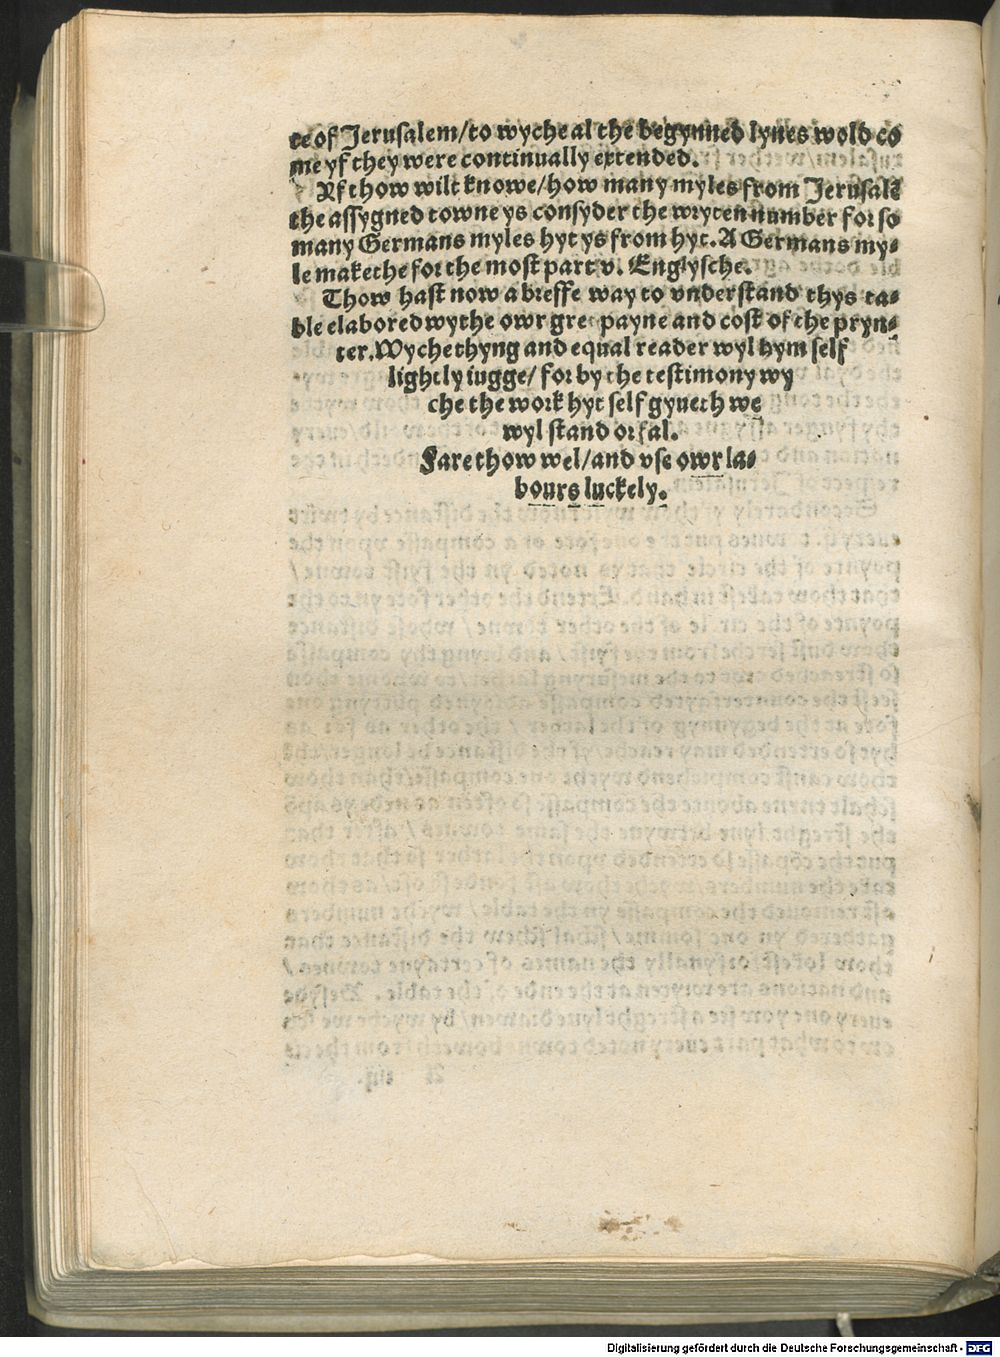 te of Jerusalem/to wyche al the begynned lynes wold co
me yf they were continually extended.
Yf thow wilt knowe/how many myles from Jerusalē
the assygned towne ys consyder the wryten number for so
many Germans myles hyt ys from hyt. A Germans my-
le makethe for the most part v. Englysche.
Thow hast now a breffe way to vnderstand thys ta-
ble elabored wythe owr gret payne and cost of the pryn-
ter. Wyche thyng and equal reader wyl hym self
lightly iugge/ for by the testimony wy
che the work hyt self gyueth we
wyl stand or fal.
Fare thow wel/and vse owr la-
bours luckely.
Digitalisierung gefördert durch die Deutsche Forschungsgemeinschaft - DFG